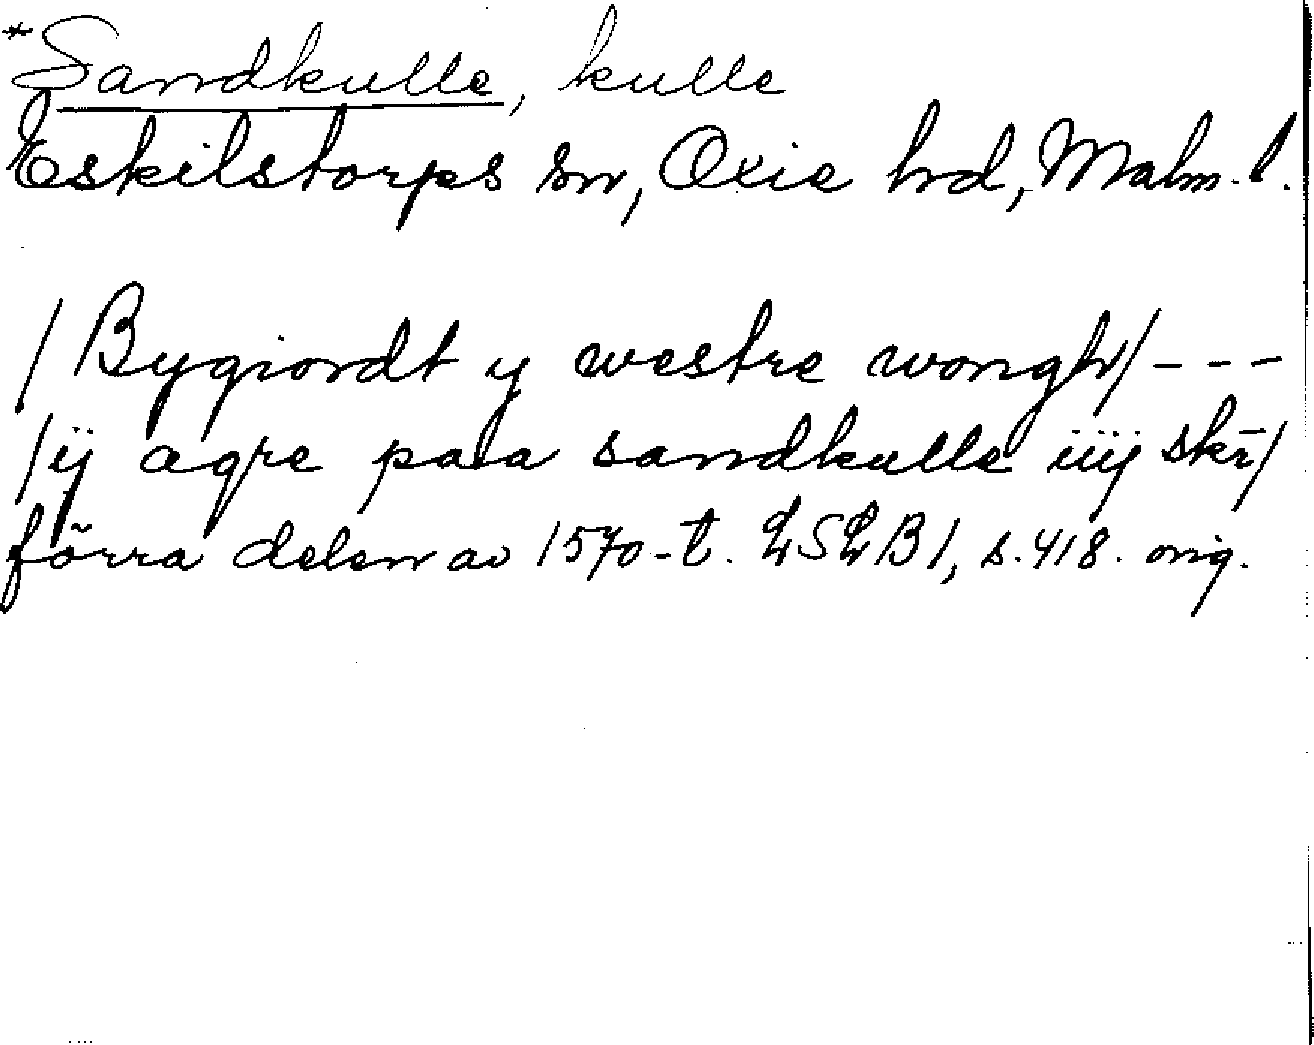 *Sandkulle, kulle
Eskilstorps sn, Oxie hd, Malm. l.
/Bygiordt y westre wongh/ - - -
/ij agre paa sandkulle iiij skr̄/
förra delen av 1570-t. LSLB 1, s. 418. orig.